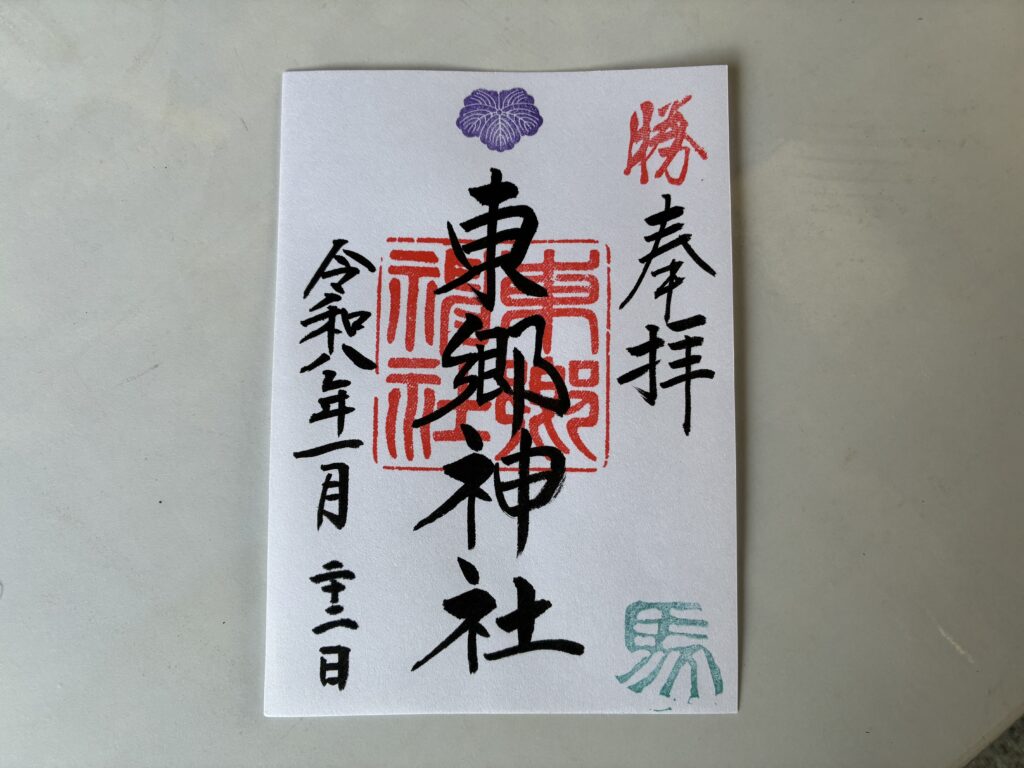 勝
奉拝
馬
東郷神社
東郷
神社
令和八年一月二十二日